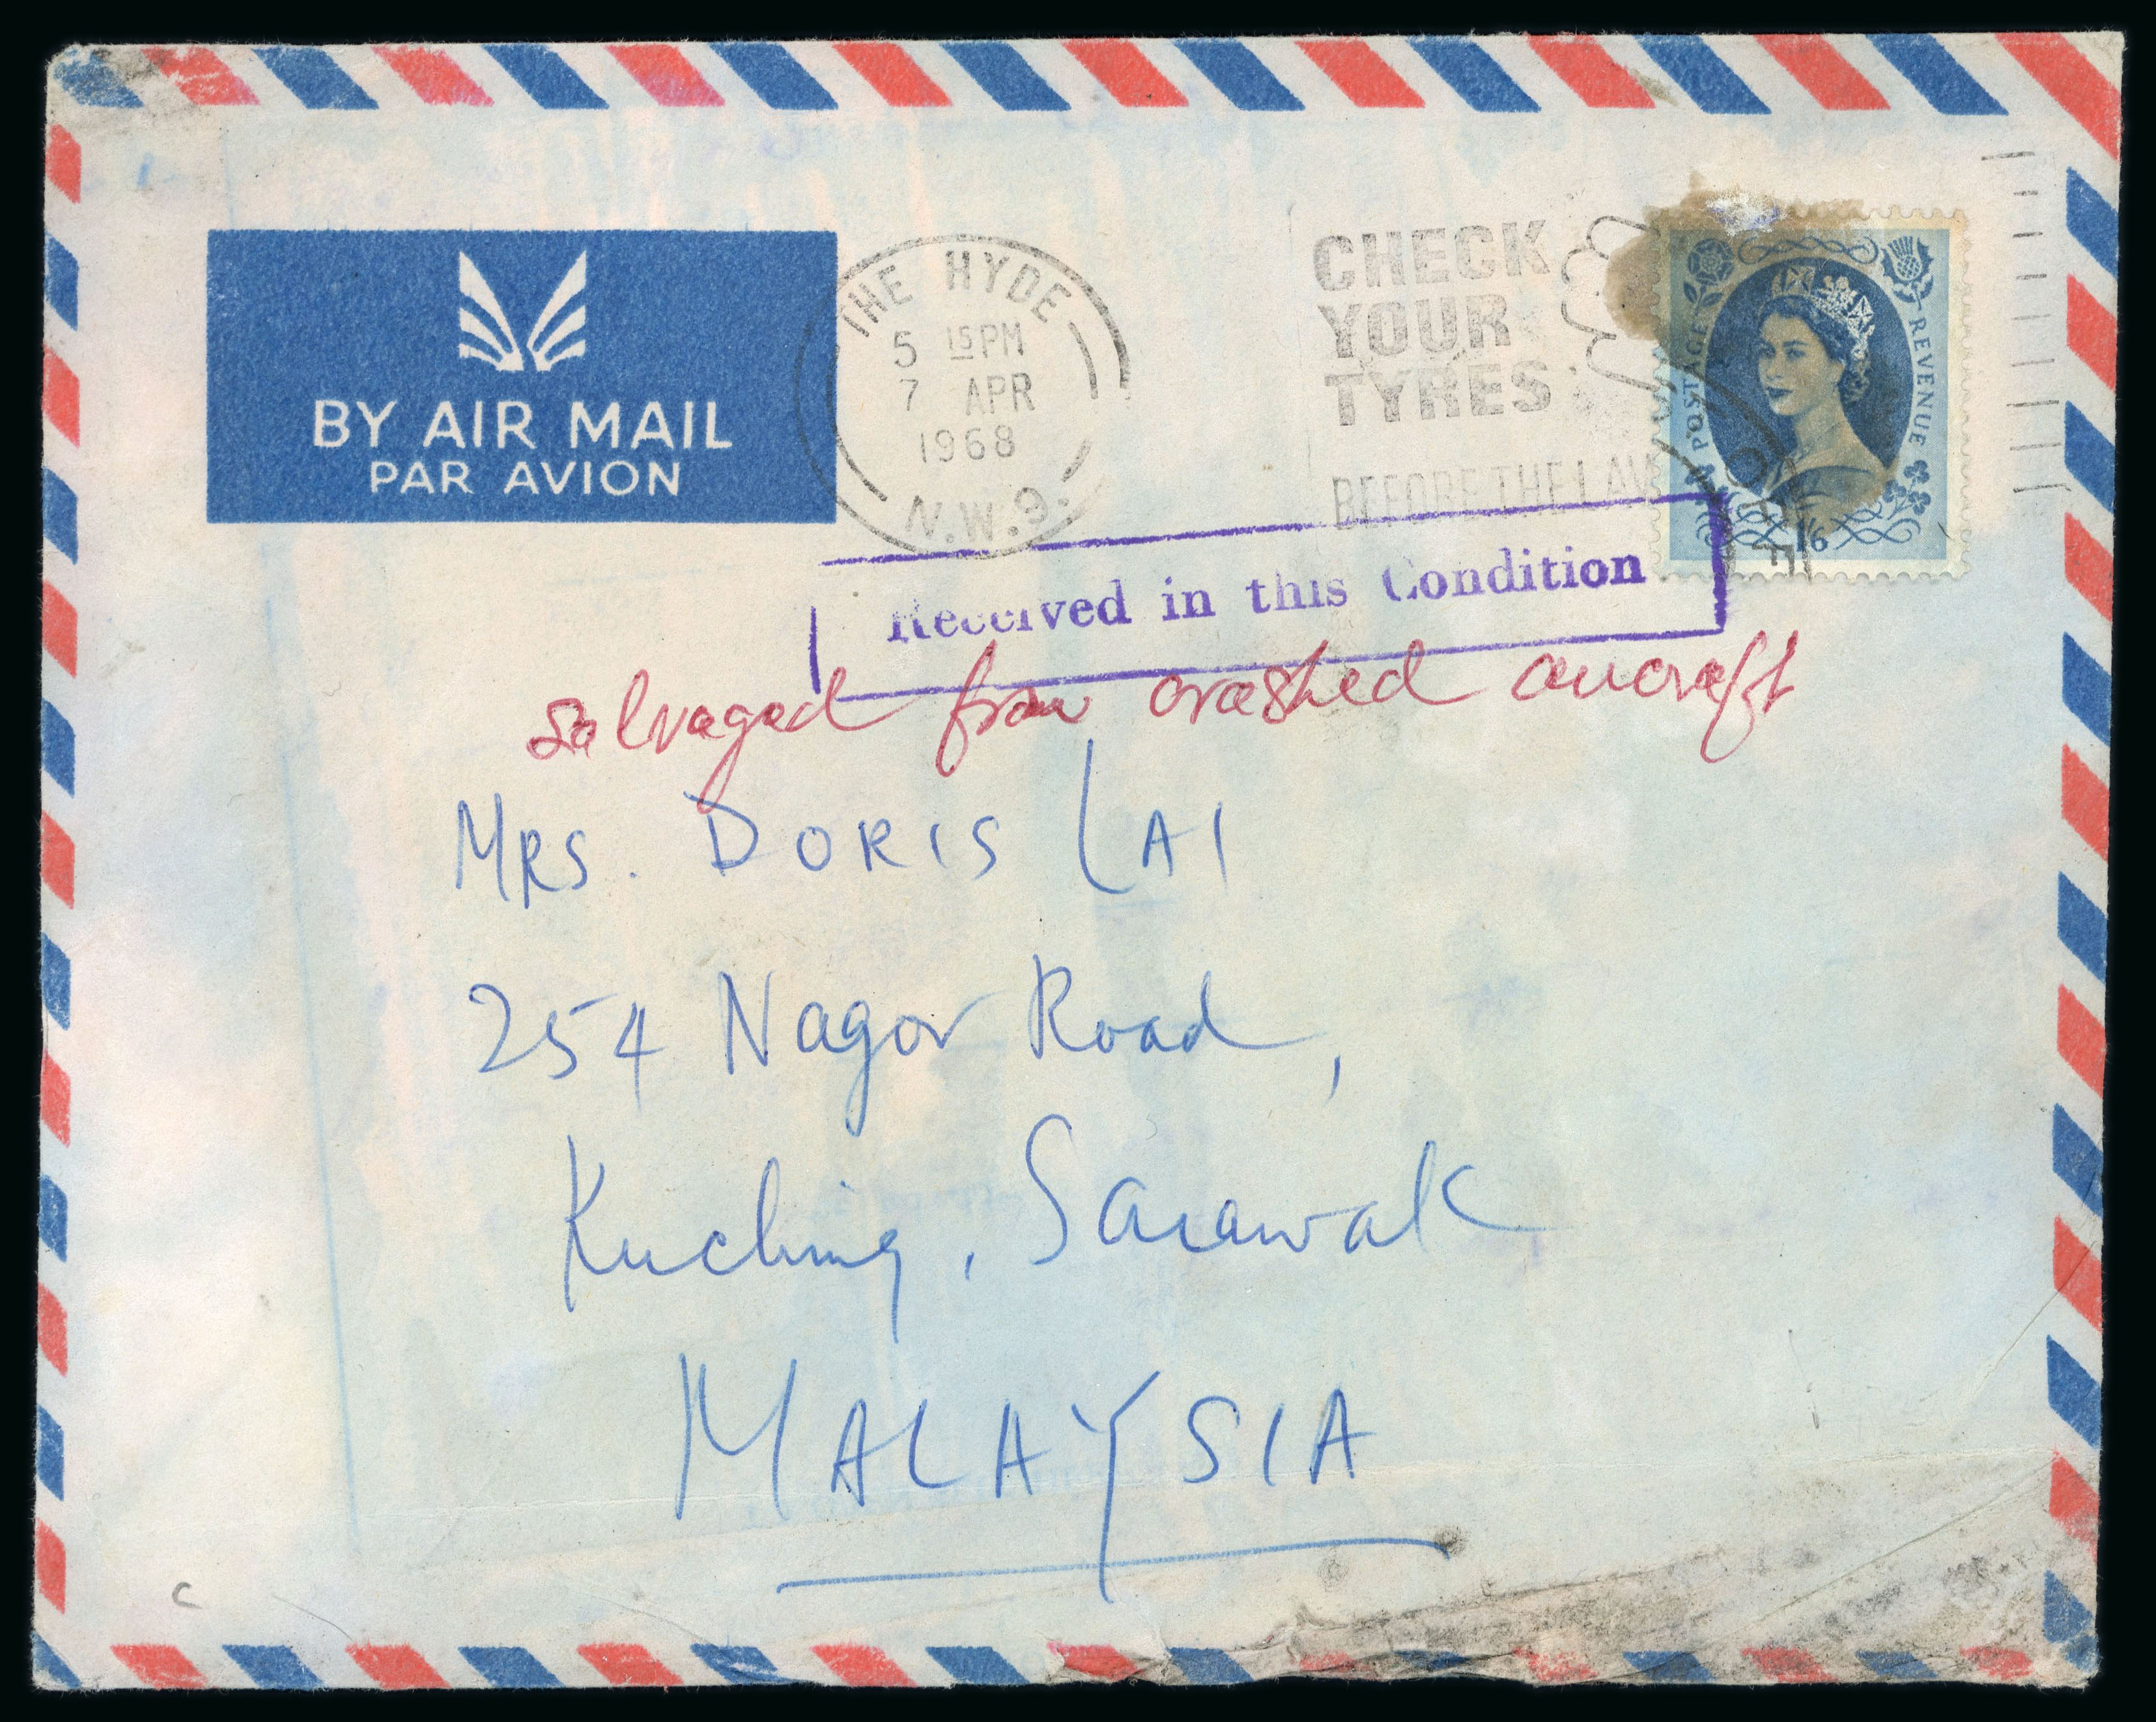 BY AIR MAIL
PAR AVION
THE HYDE
5 15 PM
7 APR
1968
N.W.9.
CHECK
YOUR
TYRES
BEFORE THE LAW
POSTAGE
REVENUE
1/6
Received in this Condition
salvaged from crashed aircraft
MRS. DORIS LAI
254 Nagor Road,
Kuching, Sarawak
MALAYSIA